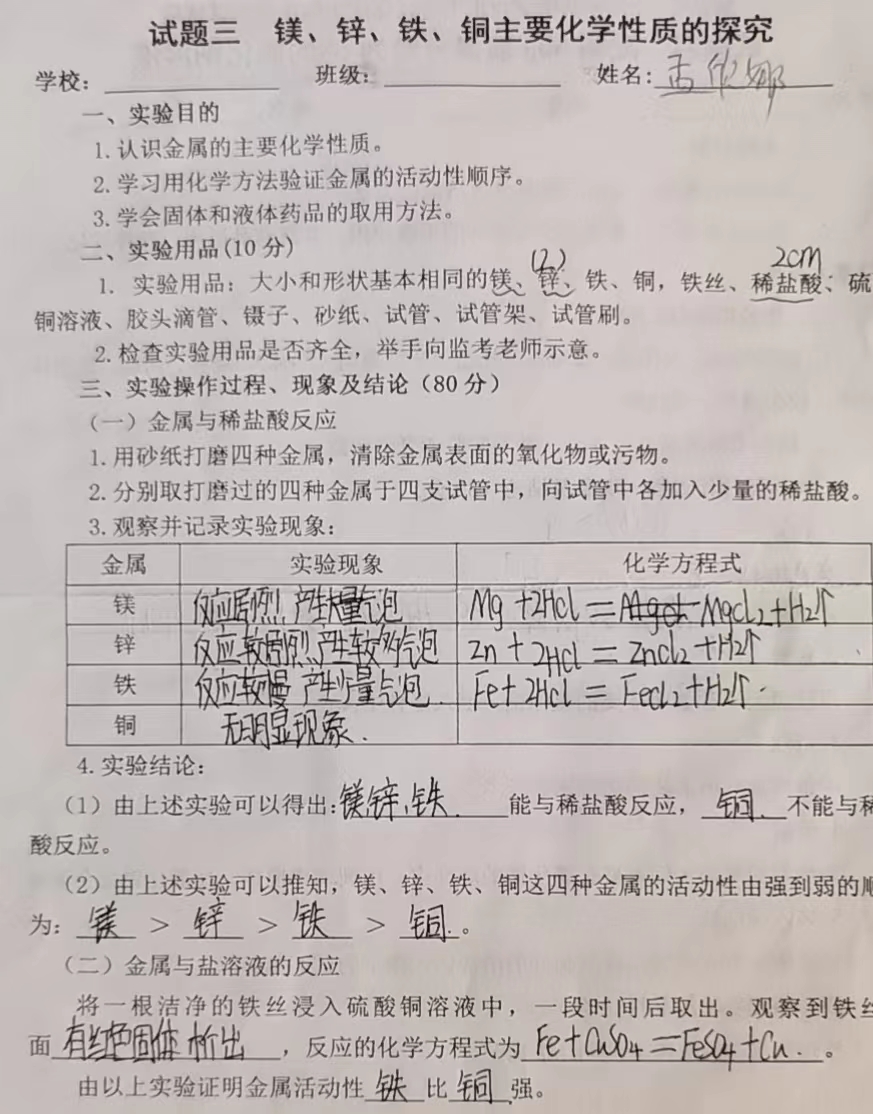 试题三 镁、锌、铁、铜主要化学性质的探究
学校： 班级： 姓名：孟
一、实验目的
1.认识金属的主要化学性质。
2.学习用化学方法验证金属的活动性顺序。
3.学会固体和液体药品的取用方法。
二、实验用品(10分)
(2) 2cm
1. 实验用品：大小和形状基本相同的镁、锌、铁、铜，铁丝、稀盐酸、硫
铜溶液、胶头滴管、镊子、砂纸、试管、试管架、试管刷。
2.检查实验用品是否齐全，举手向监考老师示意。
三、实验操作过程、现象及结论（80分）
（一）金属与稀盐酸反应
1.用砂纸打磨四种金属，清除金属表面的氧化物或污物。
2.分别取打磨过的四种金属于四支试管中，向试管中各加入少量的稀盐酸。
3.观察并记录实验现象：
金属 实验现象 化学方程式
镁 反应剧烈，产生大量气泡 Mg+2HCl=MgCl2+H2↑
锌 反应较剧烈，产生较多气泡 Zn+2HCl=ZnCl2+H2↑
铁 反应较慢 产生少量气泡. Fe+2HCl=FeCl2+H2↑.
铜 无明显现象.
4.实验结论：
（1）由上述实验可以得出：镁、锌、铁.能与稀盐酸反应，铜.不能与稀
酸反应。
（2）由上述实验可以推知，镁、锌、铁、铜这四种金属的活动性由强到弱的顺
为：镁＞锌＞铁＞铜.。
（二）金属与盐溶液的反应
将一根洁净的铁丝浸入硫酸铜溶液中，一段时间后取出。观察到铁丝
面有红色固体析出，反应的化学方程式为Fe+CuSO4=FeSO4+Cu.。
由以上实验证明金属活动性铁比铜强。